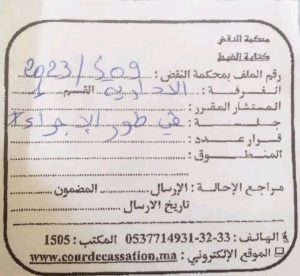 محكمة النقض
كتابة الضبط
رقم الملف بمحكمة النقض: 2023/509
الغرفة: الادارية القسم:
المستشار المقرر:
جلسة: في طور الإجراء
قرار عدد:
المنطوق:
مراجع الإحالة: الإرسال المضمون
تاريخ الارسال
الهاتف: 33-32-0537714931 المكتب: 1505
الموقع الإلكتروني: www.courdecassation,ma